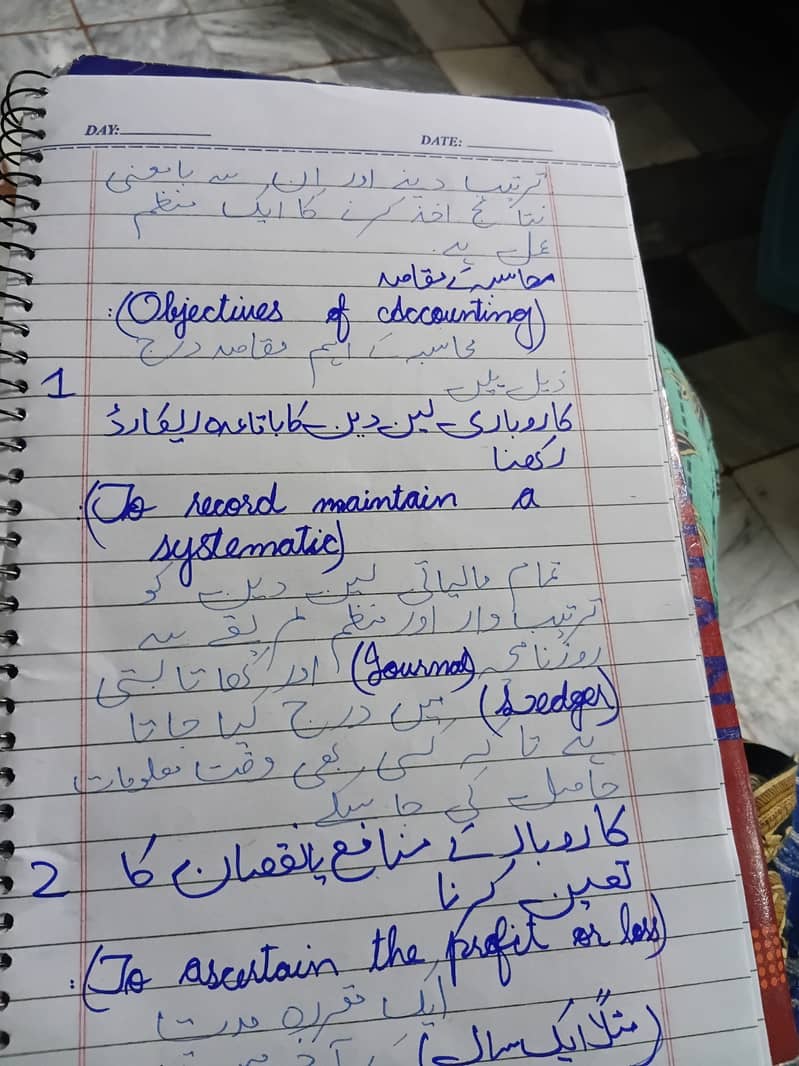 DAY:
DATE:
ترتیب دینے اور ان سے بامعنی
نتائج اخذ کرنے کا ایک منظم
عمل ہے۔
محاسبہ کے مقاصد
(Objectives of Accounting):
محاسبہ کے اہم مقاصد درج
ذیل ہیں
1
کاروباری لین دین کا باقاعدہ ریکارڈ
رکھنا
(To record maintain a
systematic)
تمام مالیاتی لین دین کو
ترتیب وار اور منظم طریقے سے
روزنامچہ (Journal) اور کھاتا بستی
(Ledger) میں درج کیا جاتا
ہے تا کہ کسی بھی وقت معلومات
حاصل کی جا سکے۔
2 کاروبار کے منافع یا نقصان کا
تعین کرنا
(To ascertain the profit or loss):
ایک مقررہ مدت
(مثلاً ایک سال) کے آخر میں